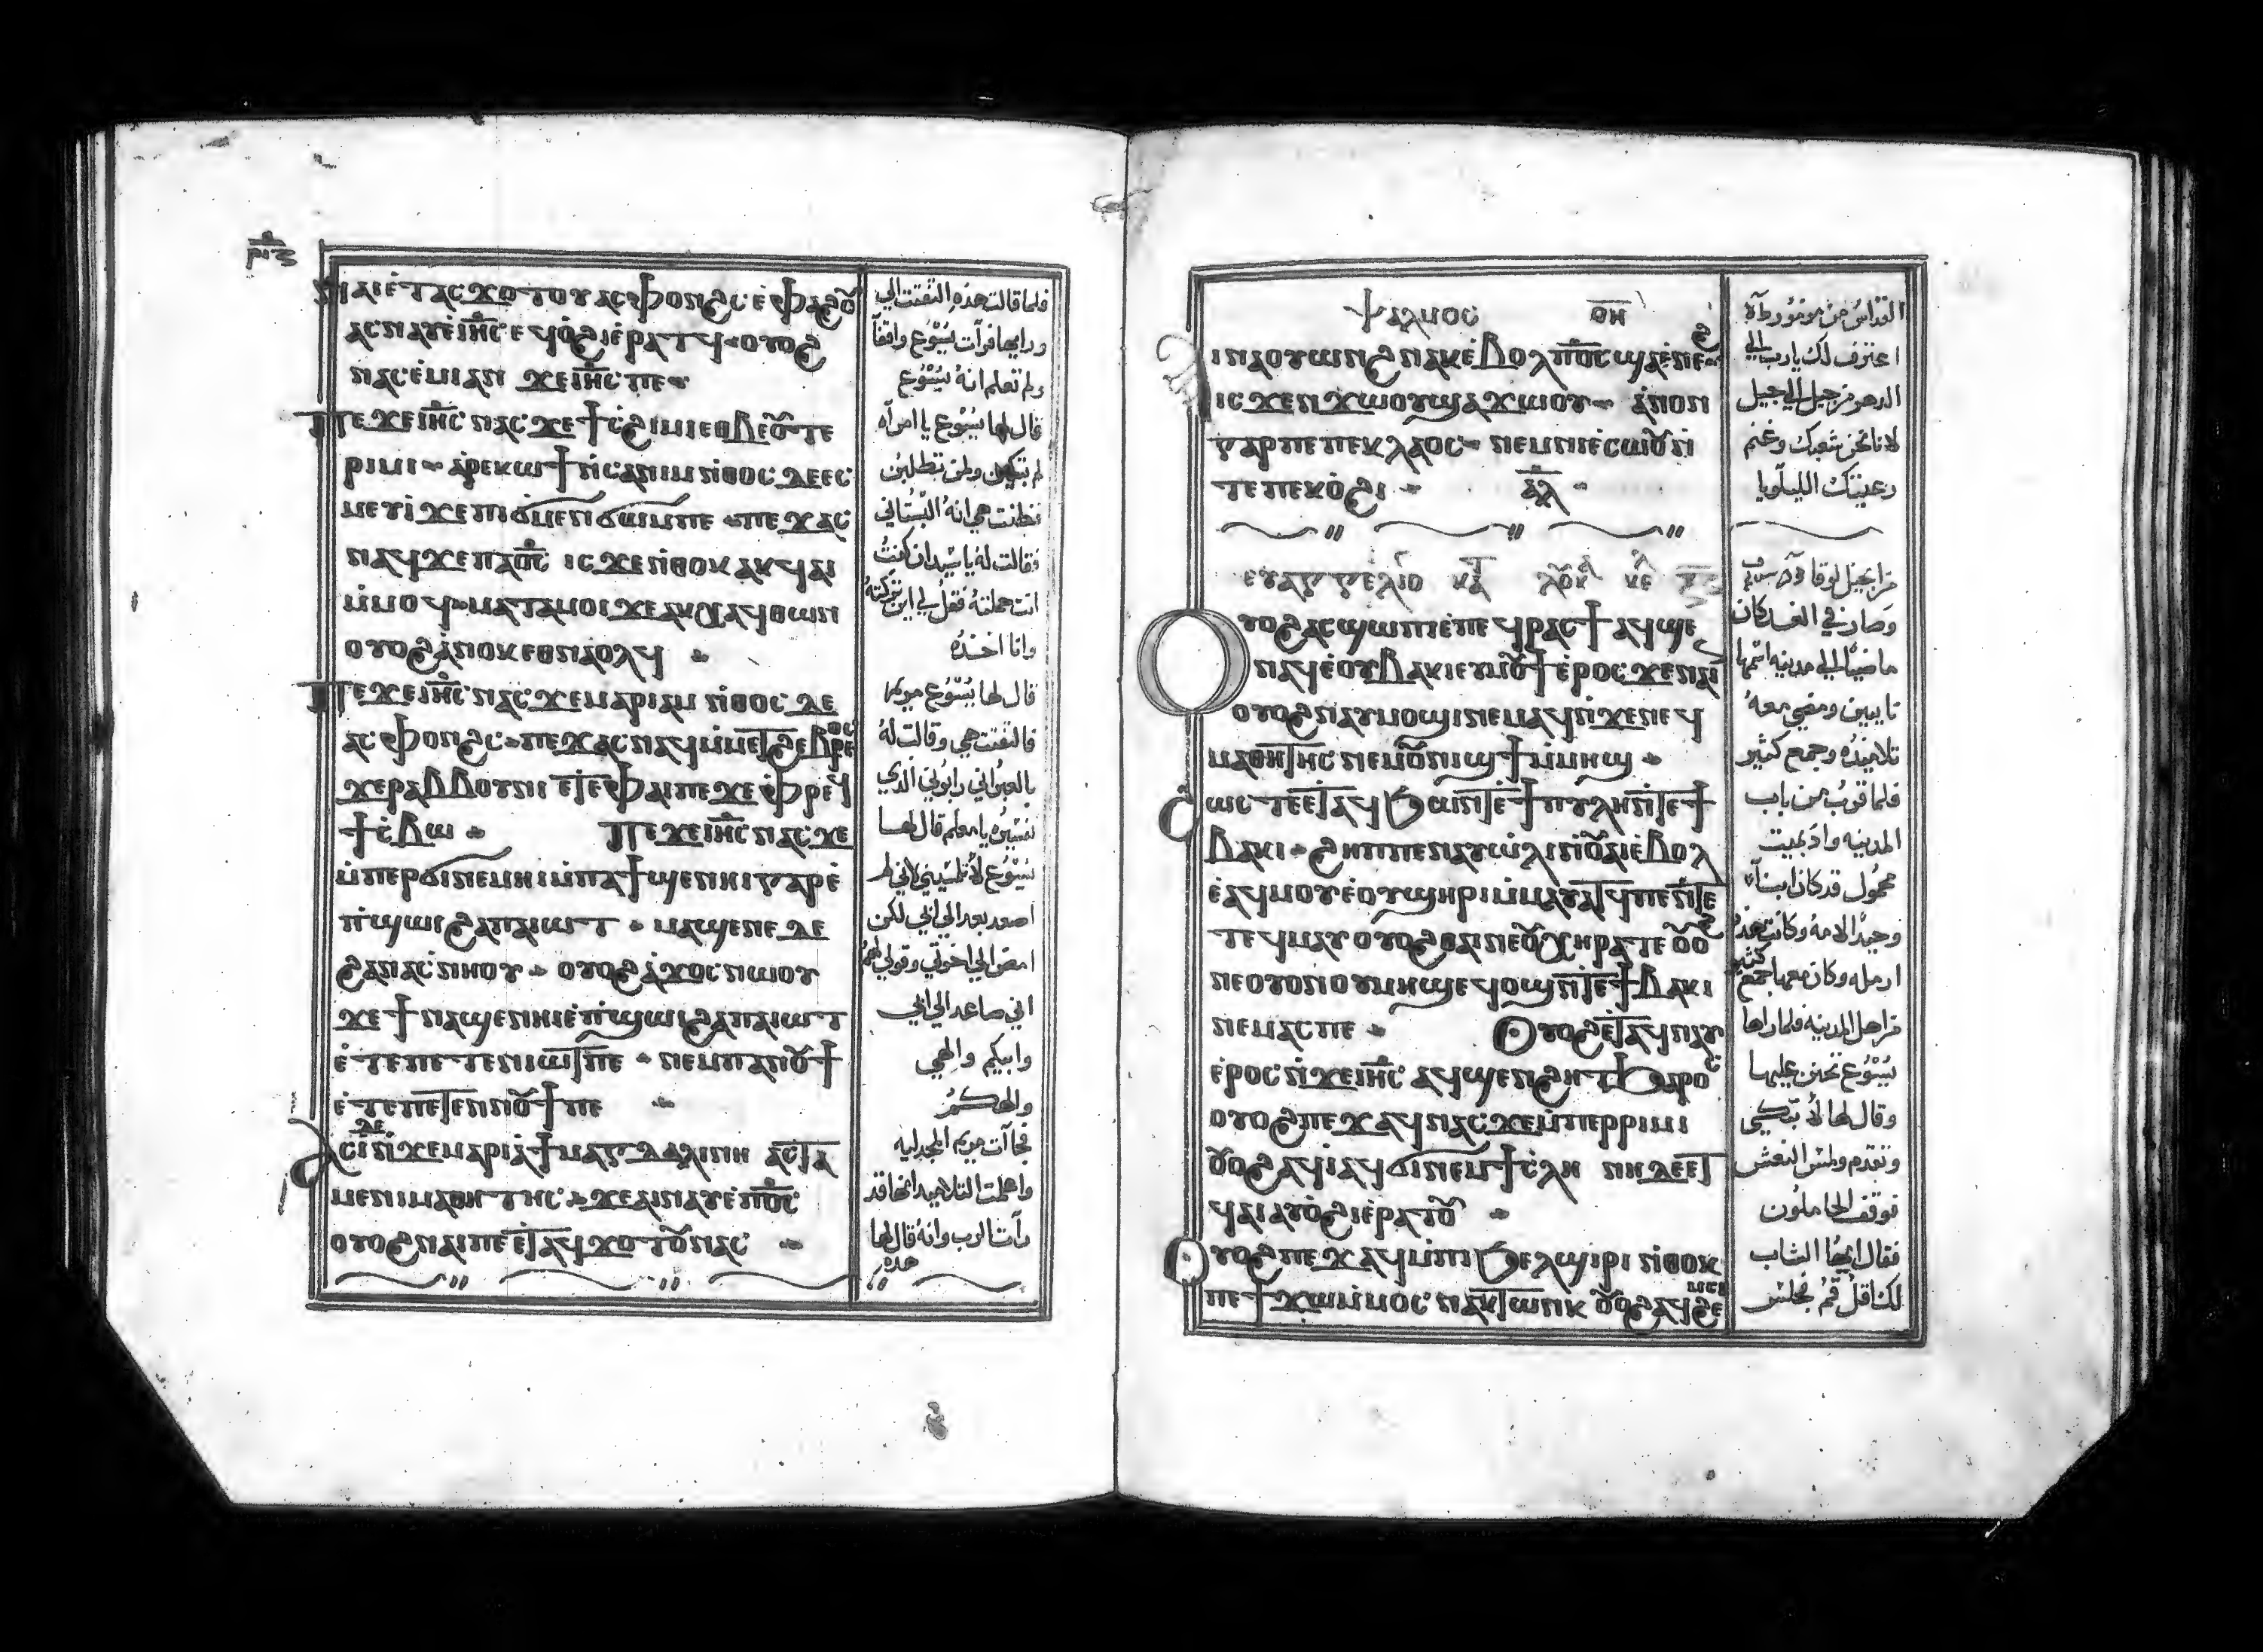 ⲣⲓⲍ
ⲛⲁⲓ ⲉ̇ⲧⲁⲥϫⲟⲧⲟⲩ ⲁⲥⲫⲟⲛϩⲥ ⲉ̇ⲫⲁϩⲟⲩ
ⲁⲥⲛⲁⲩ ⲉ̇ⲓⲏ̅ⲥ ⲉϥⲟ̇ϩⲓ ⲉ̇ⲣⲁⲧϥ ⲟⲩⲟϩ
ⲛⲁⲥⲉ̇ⲙⲓ ⲁⲛ ϫⲉ ⲓⲏ̅ⲥ ⲡⲉ
ⲡⲉϫⲉ ⲓⲏ̅ⲥ ⲛⲁⲥ ϫⲉ ϯⲥ̇ϩⲓⲙⲓ ⲉⲑⲃⲉⲟⲩ ⲧⲉ
ⲣⲓⲙⲓ ⲁⲣⲉⲕⲱϯ ⲛ̇ⲥⲁ ⲛⲓⲙ ⲛ̇ⲑⲟⲥ ⲇⲉ ⲉⲥ
ⲙⲉⲩⲓ̇ ϫⲉ ⲡⲓϭⲙⲉⲛϭⲱⲙ ⲡⲉ ⲡⲉϫⲁⲥ
ⲛⲁϥ ϫⲉ ⲡⲁⲟ̅ⲥ ⲓⲥϫⲉ ⲛ̇ⲑⲟⲕ ⲁⲕϥⲁⲓ
ⲙ̇ⲙⲟϥ ⲙⲁⲧⲁⲙⲟⲓ ϫⲉ ⲁⲕⲭⲁϥ ⲑⲱⲛ
ⲟⲩⲟϩ ⲁ̇ⲛⲟⲕ ⲉⲑⲛⲁⲟⲗϥ
ⲡⲉϫⲉ ⲓⲏ̅ⲥ ⲛⲁⲥ ϫⲉ ⲙⲁⲣⲓⲁⲙ ⲛ̇ⲑⲟⲥ ⲇⲉ
ⲁⲥⲫⲟⲛϩⲥ ⲡⲉϫⲁⲥ ⲛⲁϥ ⲙ̇ⲙⲉⲧϩⲉⲃⲣⲉⲟⲥ
ϫⲉ ⲣⲁⲃⲃⲟⲩⲛⲓ ⲉⲧⲉ ⲫⲁⲓ ⲡⲉ ϫⲉ ⲫⲣⲉϥ
ϯⲥ̇ⲃⲱ ⲡⲉϫⲉ ⲓⲏ̅ⲥ ⲛⲁⲥ ϫⲉ
ⲙ̇ⲡⲉⲣϭⲓⲛⲉⲙⲏⲓ ⲙ̇ⲡⲁϯϣⲉⲛⲏⲓ ⲅⲁⲣ ⲉ̇
ⲡ̇ϣⲱⲓ ϩⲁ ⲡⲁⲓⲱⲧ ⲙⲁϣⲉⲛⲉ ⲇⲉ
ϩⲁ ⲛⲁⲥ̇ⲛⲏⲟⲩ ⲟⲩⲟϩ ⲁ̇ϫⲟⲥ ⲛⲱⲟⲩ
ϫⲉ ϯⲛⲁϣⲉⲛⲏⲓ ⲉ̇ⲡ̇ϣⲱⲓ ϩⲁ ⲡⲁⲓⲱⲧ
ⲉ̇ⲧⲉ ⲡⲉⲧⲉⲛⲓⲱⲧ ⲡⲉ ⲛⲉⲙ ⲡⲁⲛⲟⲩϯ
ⲉ̇ⲧⲉ ⲡⲉⲧⲉⲛⲛⲟⲩϯ ⲡⲉ
ⲁⲥⲓ̇ ⲇⲉ ⲛ̇ϫⲉ ⲙⲁⲣⲓⲁ̇ ϯⲙⲁⲅⲇⲁⲗⲓⲛⲏ ⲁⲥⲧⲁ
ⲙⲉ ⲛⲓⲙⲁⲑⲏⲧⲏⲥ ϫⲉ ⲁⲓⲛⲁⲩ ⲉ̇ⲡⲟ̅ⲥ
ⲟⲩⲟϩ ⲛⲁⲓ ⲡⲉ ⲉ̇ⲧⲁϥϫⲟⲧⲟⲩ ⲛⲁⲥ
فلما قالت هذه التفتت الي
ورايها فرات يسوع واقفا
ولم تعلم انه يسوع
قال لها يسوع يا امراه
لم تبكين ولمن تطلبين
فظنت هي انه البستاني
فقالت له يا سيد ان كنت
انت حملته فقل لي اين تركته
وانا اخذه
قال لها يسوع مريم
فالتفتت هي وقالت له
بالعبراني رابوني الذي
تفسيره يا معلم قال لها
يسوع لا تلمسيني لاني لم
اصعد بعد الي ابي لكن
امضي الي اخوتي وقولي لهم
اني صاعد الي ابي
وابيكم والهي
والهكم
فجاات مريم المجدليه
واعلمت التلاميد انها قد
رات الرب وانه قال لها
هذه
ⲯⲁⲗⲙⲟⲥ ⲟⲏ
ⲧⲉⲛⲛⲁⲟⲩⲱⲛϩ ⲛⲁⲕ ⲉ̇ⲃⲟⲗ ⲡⲟ̅ⲥ ϣⲁ ⲉ̇ⲛⲉϩ
ⲓⲥϫⲉⲛ ϫⲱⲟⲩ ϣⲁ ϫⲱⲟⲩ ⲁ̇ⲛⲟⲛ
ⲅⲁⲣ ⲡⲉ ⲡⲉⲕⲗⲁⲟⲥ ⲛⲉⲙ ⲛⲓⲉ̇ⲥⲱⲟⲩ ⲛ̇
ⲧⲉ ⲡⲉⲕⲟ̇ϩⲓ ⲁⲗ
ⲉⲩⲁⲅⲅⲉⲗⲓⲟ ⲕⲁⲧ ⲗⲟⲩⲕ ⲕⲉ
ⲟⲩⲟϩ ⲁⲥϣⲱⲡⲓ ⲉ̇ⲡⲉϥⲣⲁⲥϯ ⲁϥϣⲉ
ⲛⲁϥ ⲉ̇ⲟⲩⲃⲁⲕⲓ ⲉⲩⲙⲟⲩϯ ⲉ̇ⲣⲟⲥ ϫⲉ ⲛⲁⲓ
ⲟⲩⲟϩ ⲛⲁⲩⲙⲟϣⲓ ⲛⲉⲙⲁϥ ⲛ̇ϫⲉ ⲛⲉϥ
ⲙⲁⲑⲏⲧⲏⲥ ⲛⲉⲙ ⲟⲩⲛⲓϣϯ ⲙ̇ⲙⲏϣ
ϩⲱⲥ ⲇⲉ ⲉⲧⲁϥϧⲱⲛⲧ ⲉ̇ϯⲡⲩⲗⲏ ⲛ̇ⲧⲉ ϯ
ⲃⲁⲕⲓ ϩⲏⲡⲡⲉ ⲛⲁⲩⲱ̇ⲗⲓ ⲛ̇ⲟⲩⲁⲓ ⲉ̇ⲃⲟⲗ
ⲉ̇ⲁϥⲙⲟⲩ ⲉ̇ⲟⲩϣⲏⲣⲓ ⲙ̇ⲙⲁⲩⲁⲧϥ ⲡⲉ ⲛ̇ⲧⲉ
ⲧⲉϥⲙⲁⲩ ⲟⲩⲟϩ ⲑⲁⲓ ⲛⲉⲟⲩⲭⲏⲣⲁ ⲧⲉ ⲟⲩⲟϩ
ⲛⲉⲟⲩⲟⲛ ⲟⲩⲙⲏϣ ⲉϥⲟϣ ⲛ̇ⲧⲉ ϯⲃⲁⲕⲓ
ⲛⲉⲙⲁⲥ ⲡⲉ ⲟⲩⲟϩ ⲉ̇ⲧⲁϥⲛⲁⲩ
ⲉ̇ⲣⲟⲥ ⲛ̇ϫⲉ ⲓⲏ̅ⲥ ⲁϥϣⲉⲛϩⲏⲧ ϧⲁⲣⲟⲥ
ⲟⲩⲟϩ ⲡⲉϫⲁϥ ⲛⲁⲥ ϫⲉ ⲙ̇ⲡⲉⲣⲣⲓⲙⲓ
ⲟⲩⲟϩ ⲁϥⲓ̇ ⲁϥϭⲓⲛⲉⲙ ϯⲥ̇ⲗⲏ ⲛⲏ ⲇⲉ ⲉⲧ
ϥⲁⲓ ⲁⲩⲟ̇ϩⲓ ⲉ̇ⲣⲁⲧⲟⲩ
ⲟⲩⲟϩ ⲡⲉϫⲁϥ ⲙ̇ⲡⲓϧⲉⲗϣⲓⲣⲓ ⲛ̇ⲑⲟⲕ
ⲡⲉϯϫⲱ ⲙ̇ⲙⲟⲥ ⲛⲁⲕ ⲧⲱⲛⲕ ⲟⲩⲟϩ ⲁϥϩⲉⲙⲥⲓ
القداس من مزمور
اعترف لك يا رب الي
الدهر من جيل الي جيل
لاننا نحن شعبك وغنم
رعيتك الليلويا
من انجيل لوقا
وصار في الغد كان
ماضيا الي مدينه اسمها
نايين ومضي معه
تلاميذه وجمع كثير
فلما قرب من باب
المدينه واذ بميت
محمول قد كان ابنا
وحيدا لامه وكانت هذه
ارمله وكان معها جمع كثير
من اهل المدينه فلما راها
يسوع تحنن عليها
وقال لها لا تبكي
وتقدم ولمس النعش
فوقف الحاملون
فقال ايها الشاب
لك اقول قم فجلس